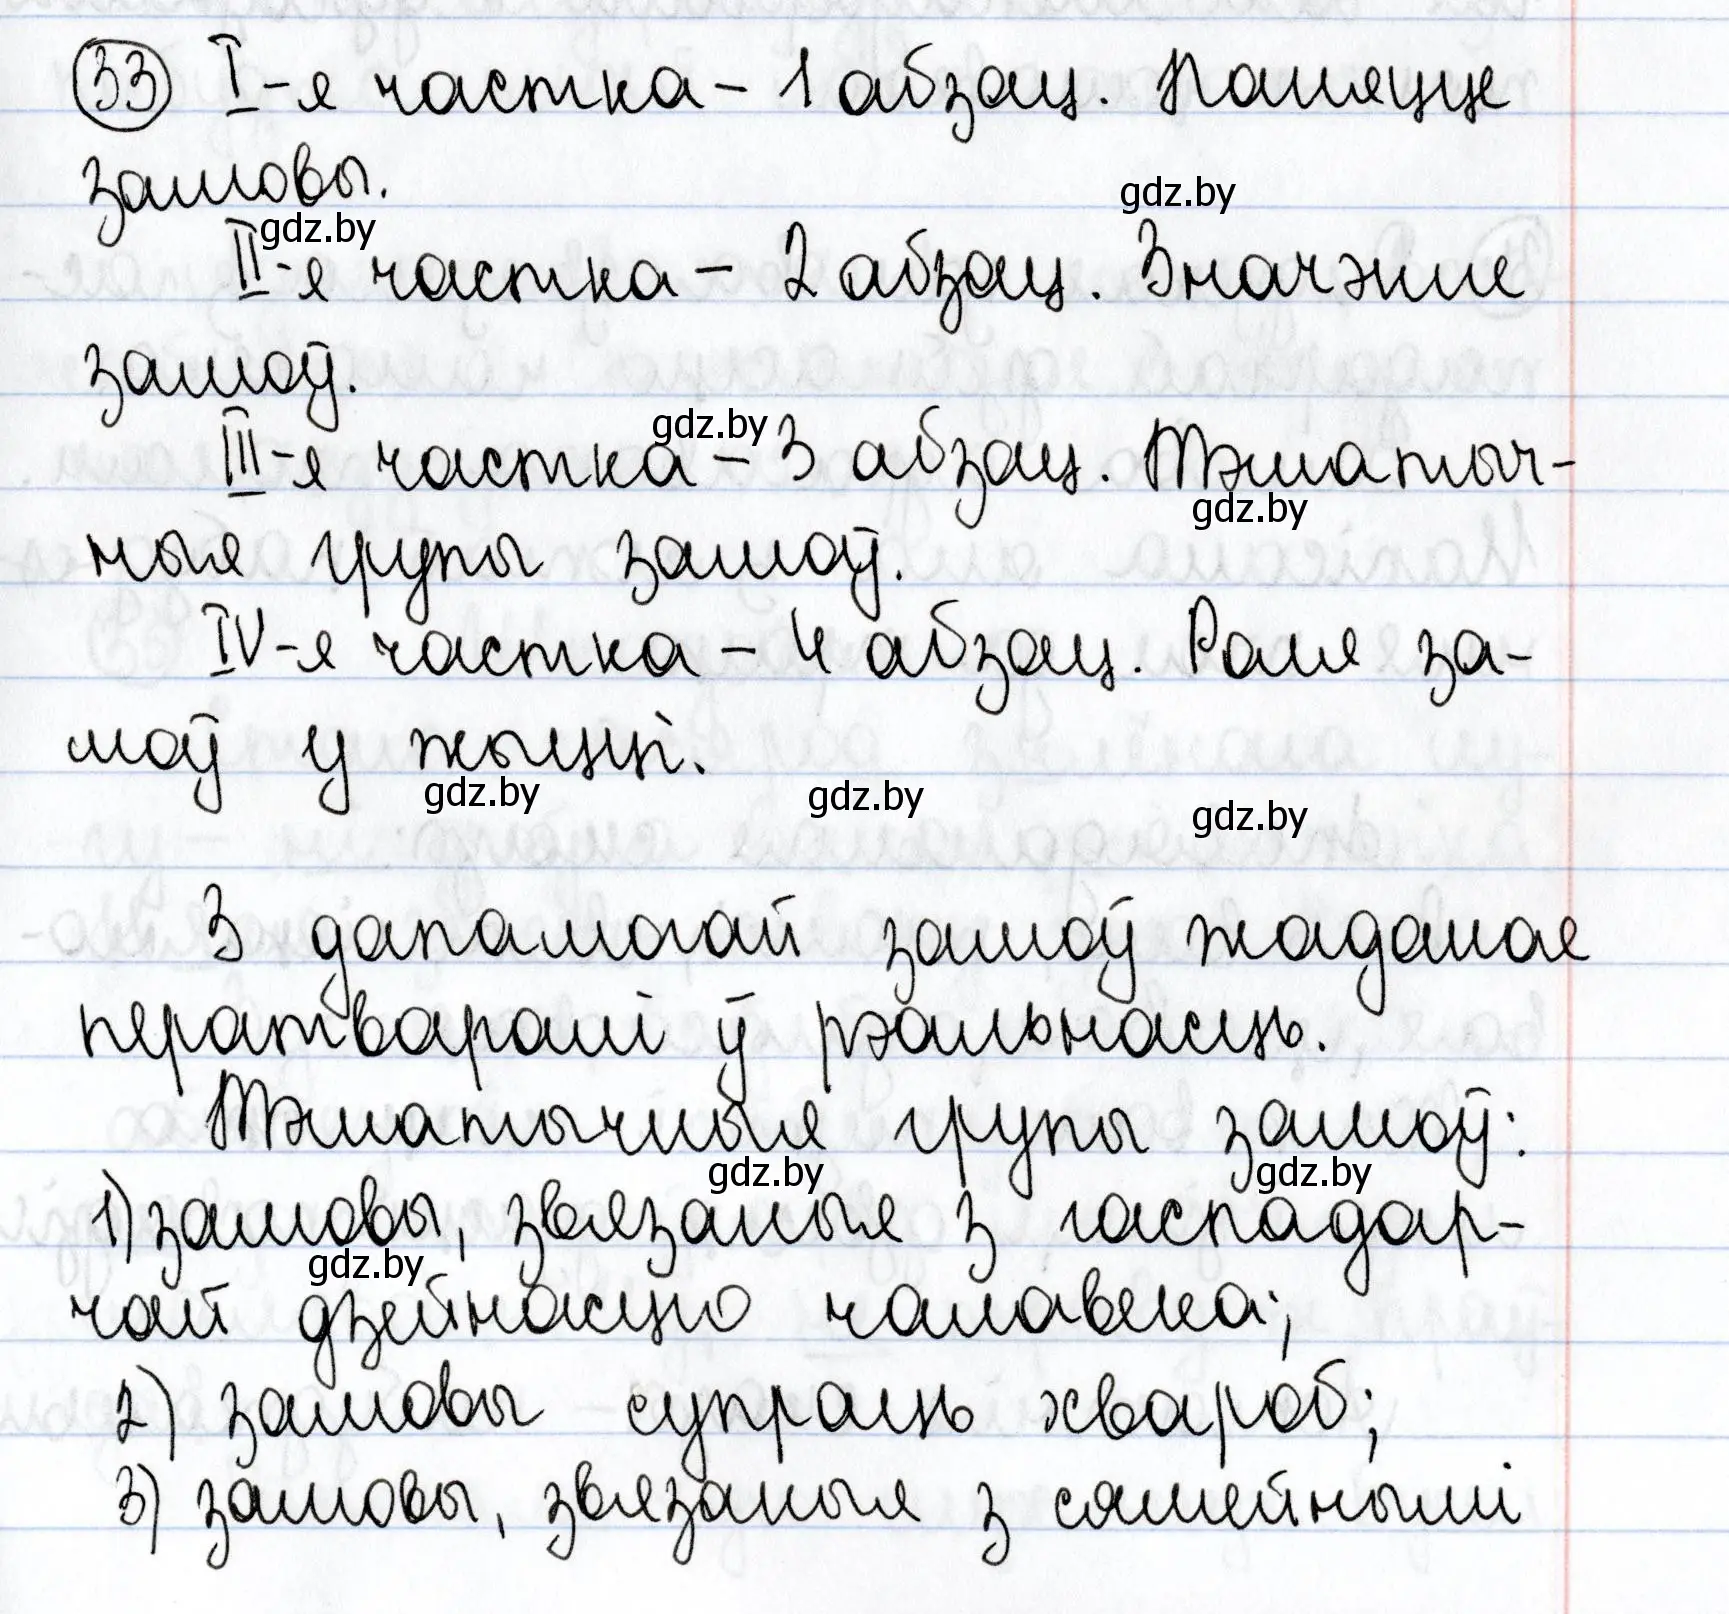 33 I-я частка - 1 абзац. Паняцце
замовы.
gdz.by
gdz.by
II-я частка - 2 абзац. Значэнне
замоў.
gdz.by
III-я частка - 3 абзац. Тэматыч-
gdz.by
ныя групы замоў.
IV-я частка - 4 абзац. Роля за-
моў у жыцці.
gdz.by gdz.by gdz.by
З дапамогай замоў жаданае
ператваралі ў рэальнасць.
Тэматычныя групы замоў:
gdz.by gdz.by
1) замовы, звязаныя з гаспадар-
gdz.by
чай дзейнасцю чалавека;
2) замовы супраць хвароб;
3) замовы, звязаныя з сямейнымі